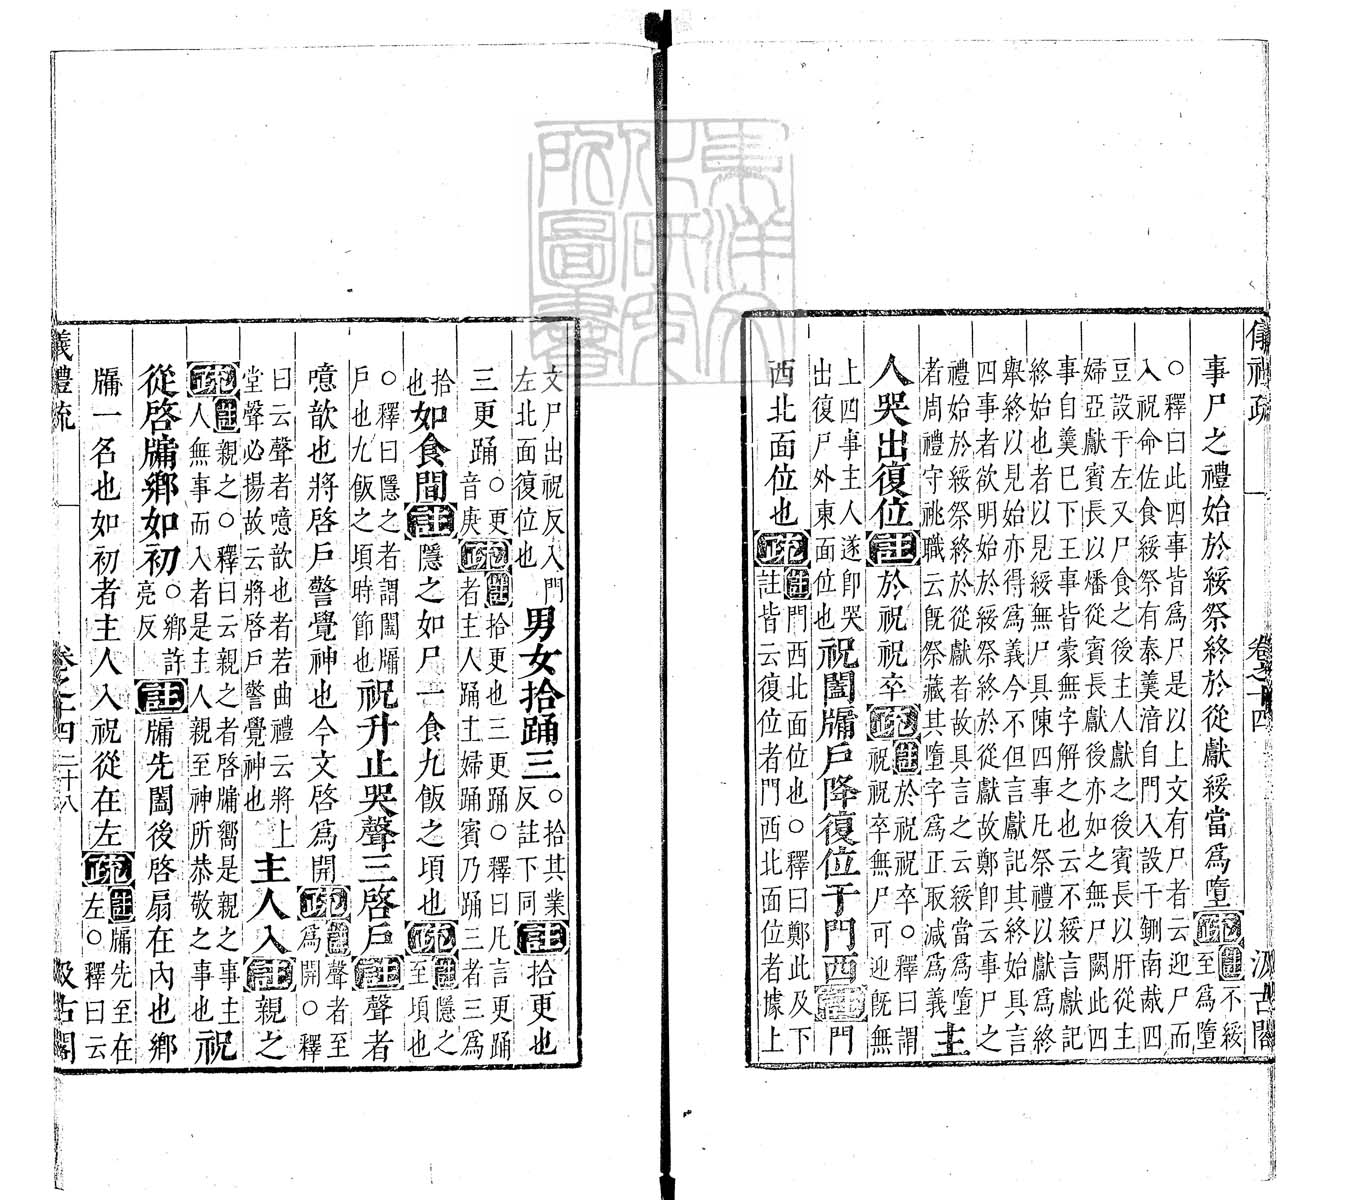 儀禮疏 卷之十四 汲古閣
事尸之禮始於綏祭終於從獻綏當爲墮疏註不綏至爲墮
○釋曰此四事皆爲尸是以上文有尸者云迎尸而
入祝命佐食綏祭有泰羹湆自門入設于鉶南胾四
豆設于左又尸食之後主人獻之後賓長以肝從主
婦亞獻賓長以燔從賓長獻後亦如之無尸闕此四
事自羹已下王事皆蒙無字解之也云不綏言獻記
終始也者以見綏無尸具陳四事凡祭禮以獻爲終
舉終以見始亦得爲義今不但言獻記其終始具言
四事者欲明始於綏祭終於從獻故鄭卽云事尸之
禮始於綏祭終於從獻者故具言之云綏當爲墮
者周禮守祧職云旣祭藏其墮字爲正取減爲義主
人哭出復位註於祝祝卒疏註於祝祝卒○釋曰謂祝祝卒無尸可迎旣無
上四事主人遂卽哭出復尸外東面位也祝闔牖戶降復位于門西註門
西北面位也疏註門西北面位也○釋曰鄭此及下註皆云復位者門西北面位者據上
文尸出祝反入門左北面復位也男女拾踊三○拾其業反註下同註拾更也
三更踊○更音庚疏註拾更也三更踊○釋曰凡言更踊者主人踊主婦踊賓乃踊三者三爲
拾也如食閒註隱之如尸一食九飯之頃也疏註隱之至頃也
○釋曰隱之者謂闔牖戶也九飯之頃時節也祝升止哭聲三啓戶註聲者
噫歆也將啓戶警覺神也今文啓爲開疏註聲者至爲開○釋
曰云聲者噫歆也者若曲禮云將上堂聲必揚故云將啓戶警覺神也主人入註親之
疏註親之○釋曰云親之者啓牖嚮是親之事主人無事而入者是主人親至神所恭敬之事也祝
從啓牖鄉如初○鄉許亮反註牖先闔後啓扇在內也鄉
牖一名也如初者主人入祝從在左疏註牖先至在左○釋曰云
儀禮疏 卷之十四 二十八 汲古閣
東洋文化研究所圖書